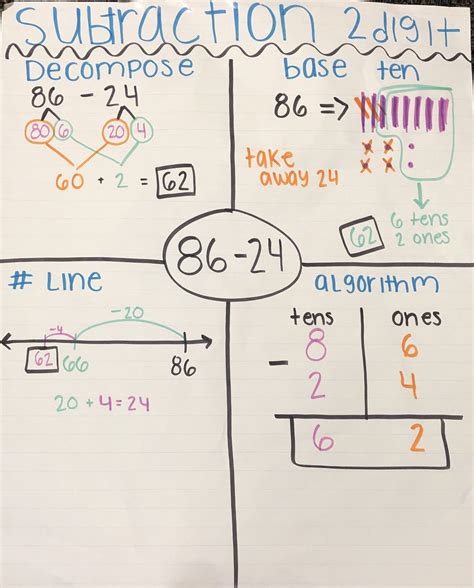 Subtraction 2digit
Decompose
86 - 24
80 6 20 4
60 + 2 = 62
base ten
86 =>
take
away 24
62
6 tens
2 ones
86-24
# Line
-20
-4
62 66 86
20 + 4 = 24
algorithm
tens ones
8 6
- 
2 4
6 2